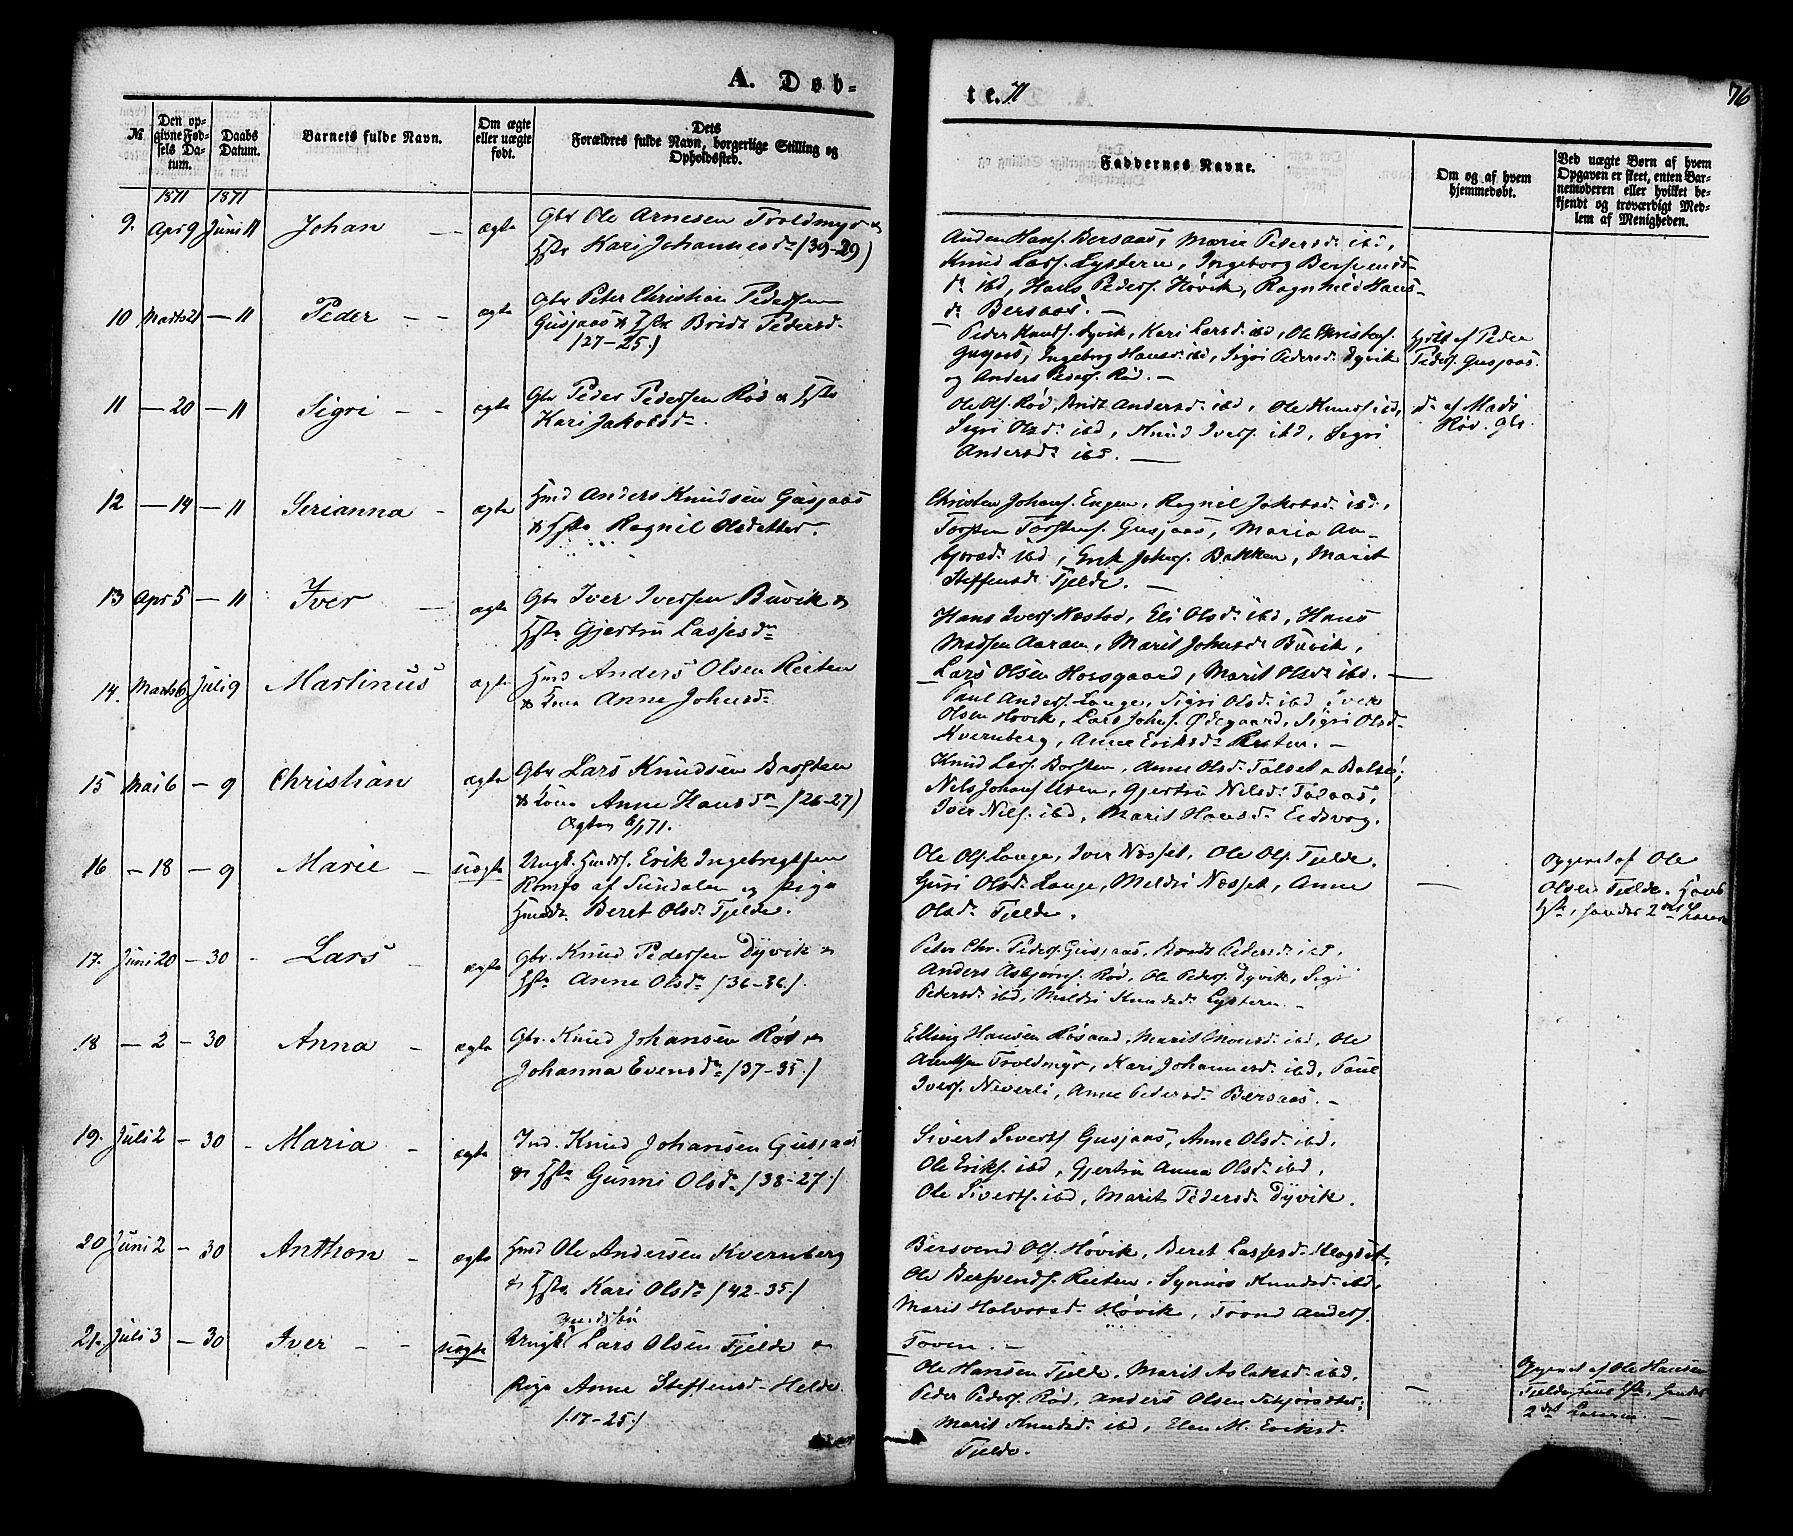 A. Døb-
te. 71
76
№
Den op-
givne Fød-
sels Da-
tum.
Daabs
Datum.
Barnets fulde Navn.
Om ægte
eller uægte
født.
Dets
Forældres fulde Navn, borgerlige Stilling og
Opholdssted.
Faddernes Navne.
Om og af hvem
hjemmedøbt.
Ved uægte Børn af hvem
Opgaven er skeet, enten Bar-
nemoderen eller hvilket be-
kjendt og troværdigt Med-
lem af Menigheden.
1871 1871
9. Apr 9 Juni 11 Johan — ægte
Gbr Ole Arnesen Troldmyr &
Hst Kari Johannesdr (39-29)
Anders Hans. Bersaas, Marie Pedersdr ibd,
Knud Lars. Lystern, Ingeborg Bersvends-
dr ibd, Hans Peders. Høvik, Ragnhild Hans-
dr Bersaas. —
10 Marts 21 — 11 Peder - - ægte
Gbr Peter Christian Pedersen
Gusjaas & Hst Bridt Pedersd.
(27-25.)
Peder Knuds. Dyvik, Kari Larsd. ibd, Ole Christens.
Gusjaas, Ingeborg Hansd. ibd, Sigri Pedersd. Dyvik
og Anders Peders. Rød. —
Hjdbt af Peder
Peders. Gusjaas.
11 — 20 — 11 Sigri - - ægte
Gbr Peder Pedersen Rød & Hst
Kari Jakobsdr.
Ole Ols. Rød, Bridt Andersd. ibd, Ole Knuds. ibd,
Sigri Olsd. ibd, Knud Ivers. ibd, Sigri
Andersd. ibd. —
do af Mads
Høv. Gbr.
12 — 14 — 11 Serianna - ægte
Hmd Anders Knudsen Gusjaas
& Hst Ragnil Olsdatter.
Christen Johans. Engen, Ragnil Jakobsd. ibd,
Torsten Torstens. Gusjaas, Maria
ibd, Erik Johns. Bakken, Marit
Steffensd. Fjelde. —
13 Apr 5 — 11 Iver — ægte
Gbr Iver Iversen Buvik &
Hst Gjertru Lassesdr
Hans Ivers. Næstad, Eli Olsd. ibd, Hans
Madsen Aaram, Marit Johnsd. Buvik,
Lars Olsen Horsgaard, Marit Olsd. ibd. —
14. Marts 6 Juli 9 Martinus ægte
Hmd Anders Olsen Reiten
& Kona Anne Johnsdr
Paul Anders. Lange, Sigri Olsd. ibd, Iver
Olsen Høvik, Lars Johns. Ødegaard, Sigri Olsd.
Kvernberg, Anne Eriksd. Reiten. —
15 Mai 6 — 9 Christian ægte
Gbr Lars Knudsen Børsten
& Kona Anne Hansdr (26-27)
6/1 71.
Knud Lars. Børsten, Anne Olsd.
Nils Johans. Usen, Gjertru Nilsd.
Iver Nils. ibd, Marit Hansd. Eidsvog.
16 — 18 — 9 Marie - uægte
Ungk. Hmds. Erik Ingebregtsen
Romfo af Sundalen og Pige
Hmdr. Beret Olsdr Fjelde.
Ole Ols. Lange, Iver Næsset, Ole Ols. Fjelde.
Guri Olsd. Lange, Meldri Næsset, Anne
Olsd. Fjelde.
—
Opgivet af Ole
Olsen Fjelde.
17. Juni 20 — 30 - Lars - ægte
Gbr. Knud Pedersen Dyvik &
Hst Anne Olsdr (36-36.)
Peter Chr. Peders. Gusjaas, Bridt Pedersd. ibd,
Anders Asbjørns. Rød, Ole Peders. Dyvik, Sigri
Pedersd. ibd, Meldri Knudsd. Lystern. —
18 — 2 — 30 Anna - ægte
Gbr. Knud Johansen Rød &
Johanna Evensdr (37-35.)
Elling Hansen Røsand, Marit Monsd. ibd, Ole
Arntsen Troldmyr, Kari Johannesd. ibd, Paul
Ivers. Neverli, Anne Pedersd. Bersaas. —
19. Juli 2 — 30 - Maria - ægte
Ind. Knud Johansen Gusjaas
& Hst Gunni Olsd. (38-27.)
Sivert Siverts. Gusjaas, Anne Olsd. ibd,
Ole Eriks. ibd, Gjertru Anna Olsd. ibd,
Ole Siverts. ibd, Marit Pedersd. Dyvik.
20 Juni 2 — 30 Anthon - ægte
Hmd Ole Andersen Kvernberg
& Hst Kari Olsdr (42-35.)
Bersvend Ols. Høvik, Beret Lassesd. Klogset,
Ole Bersvends. Reiten, Synnøv Knudsd. ibd,
Marit Halvorsd. Høvik, Trond Anders.
Toven. —
21. Juli 3 — 30 Iver - - uægte
Ungk. Lars Olsen Fjelde &
Pige Anne Steffensd. Helde
(17-25.)
Ole Hansen Fjelde, Marit Aslaksd. ibd,
Peder Peders. Rød, Anders Olsen
Marit Knudsd. ibd, Elen M. Eriksd.
Fjelde.
—
Opgivet af Ole Hansen
Fjelde